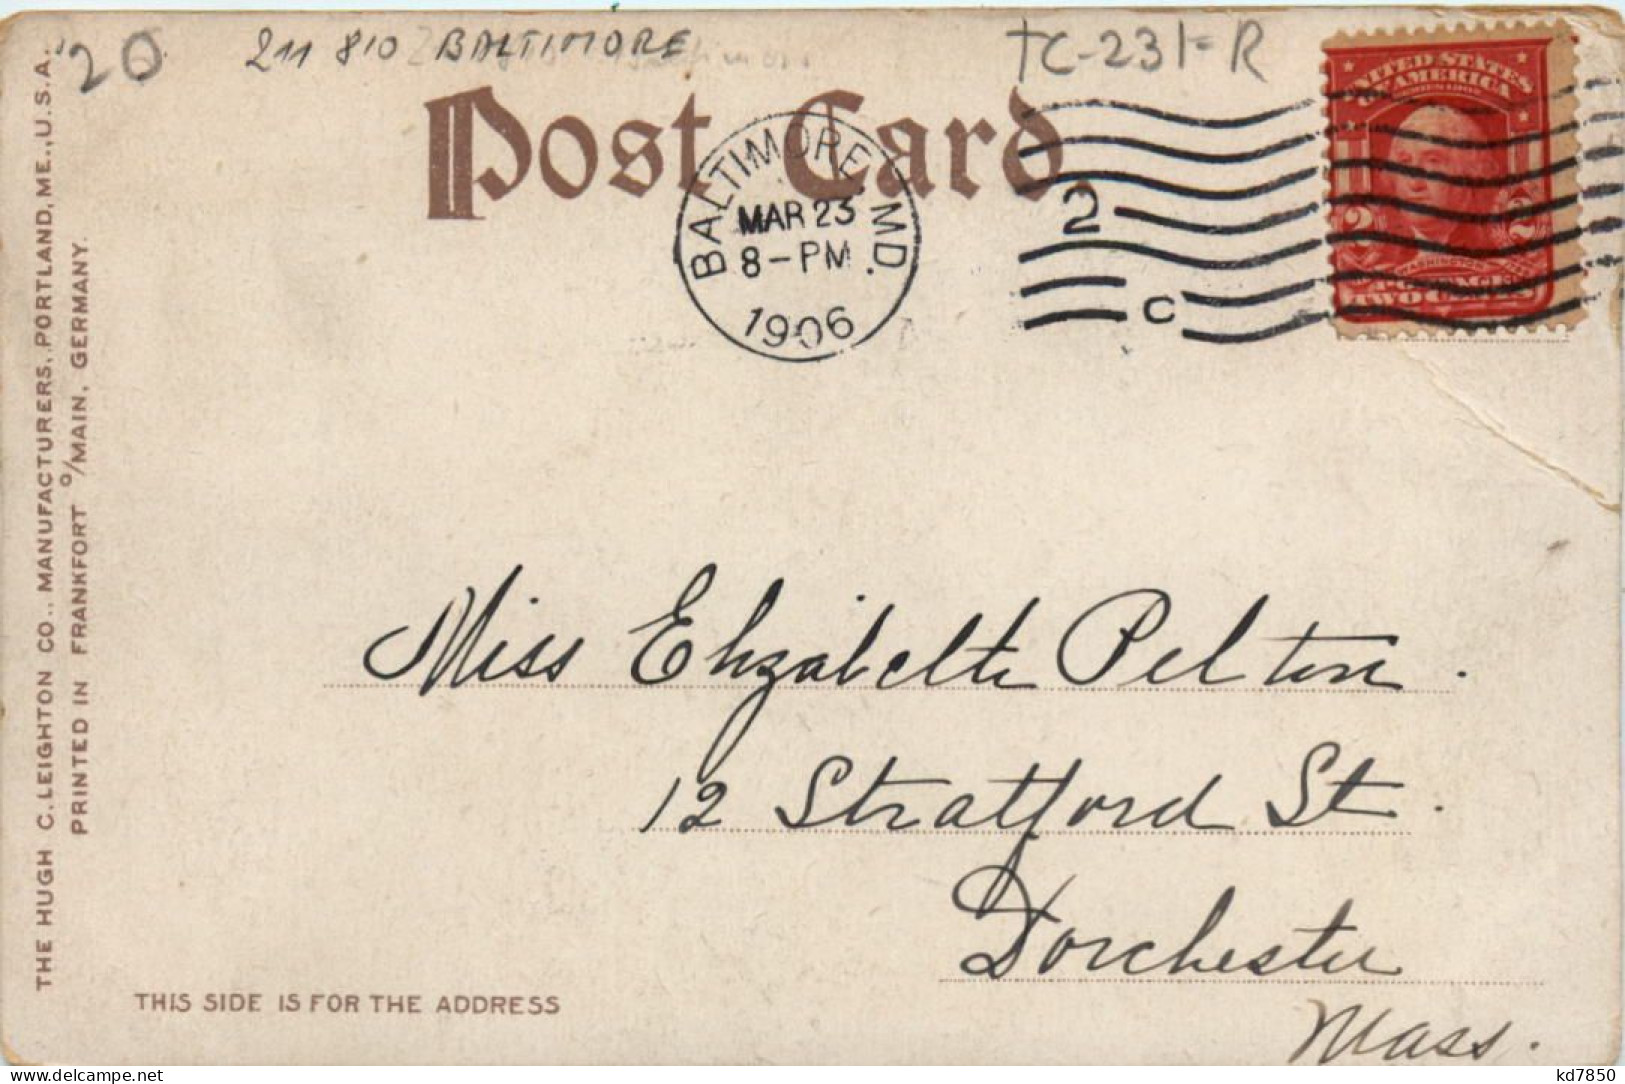 20 211 810 BALTIMORE TC-231-R
Post Card
BALTIMORE, MD.
MAR 23
8-PM
1906
2
C
UNITED STATES
OF AMERICA
2 2
WASHINGTON
POSTAGE
TWO CENTS
THE HUGH C. LEIGHTON CO., MANUFACTURERS, PORTLAND, ME., U.S.A.
PRINTED IN FRANKFORT O/MAIN, GERMANY.
Miss Elizabeth Pelton.
12 Stratford St.
Dorchester
Mass.
THIS SIDE IS FOR THE ADDRESS
delcampe.net
kd7850